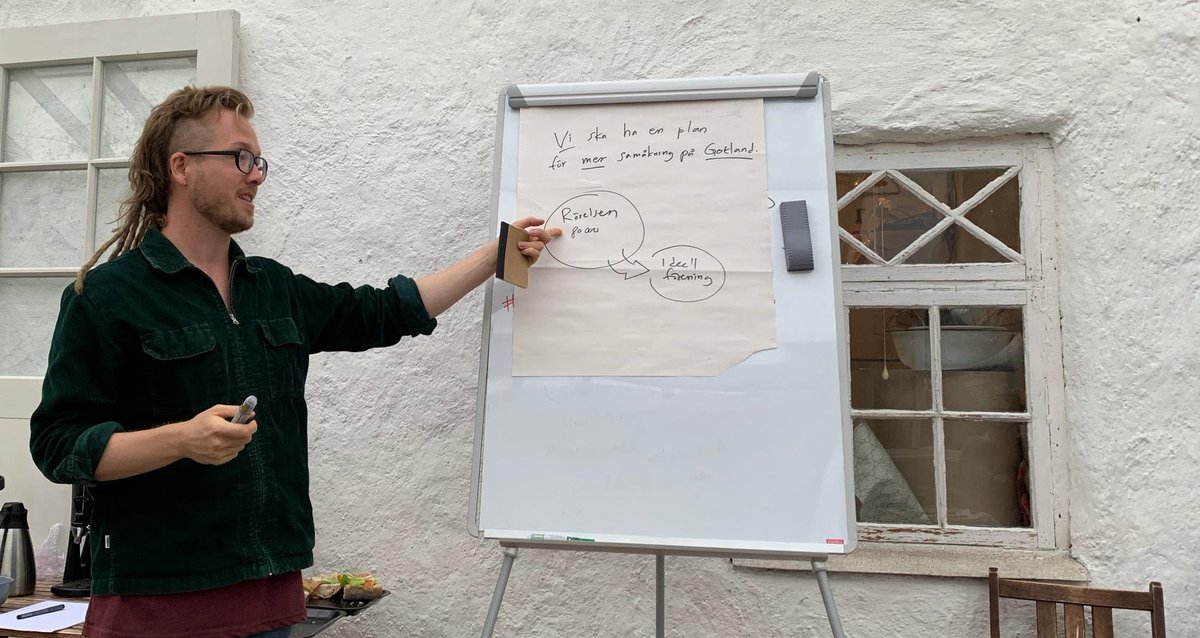 Vi ska ha en plan
för mer samåkning på Gotland.
Rörelsen
80 000
Ideell
förening
#